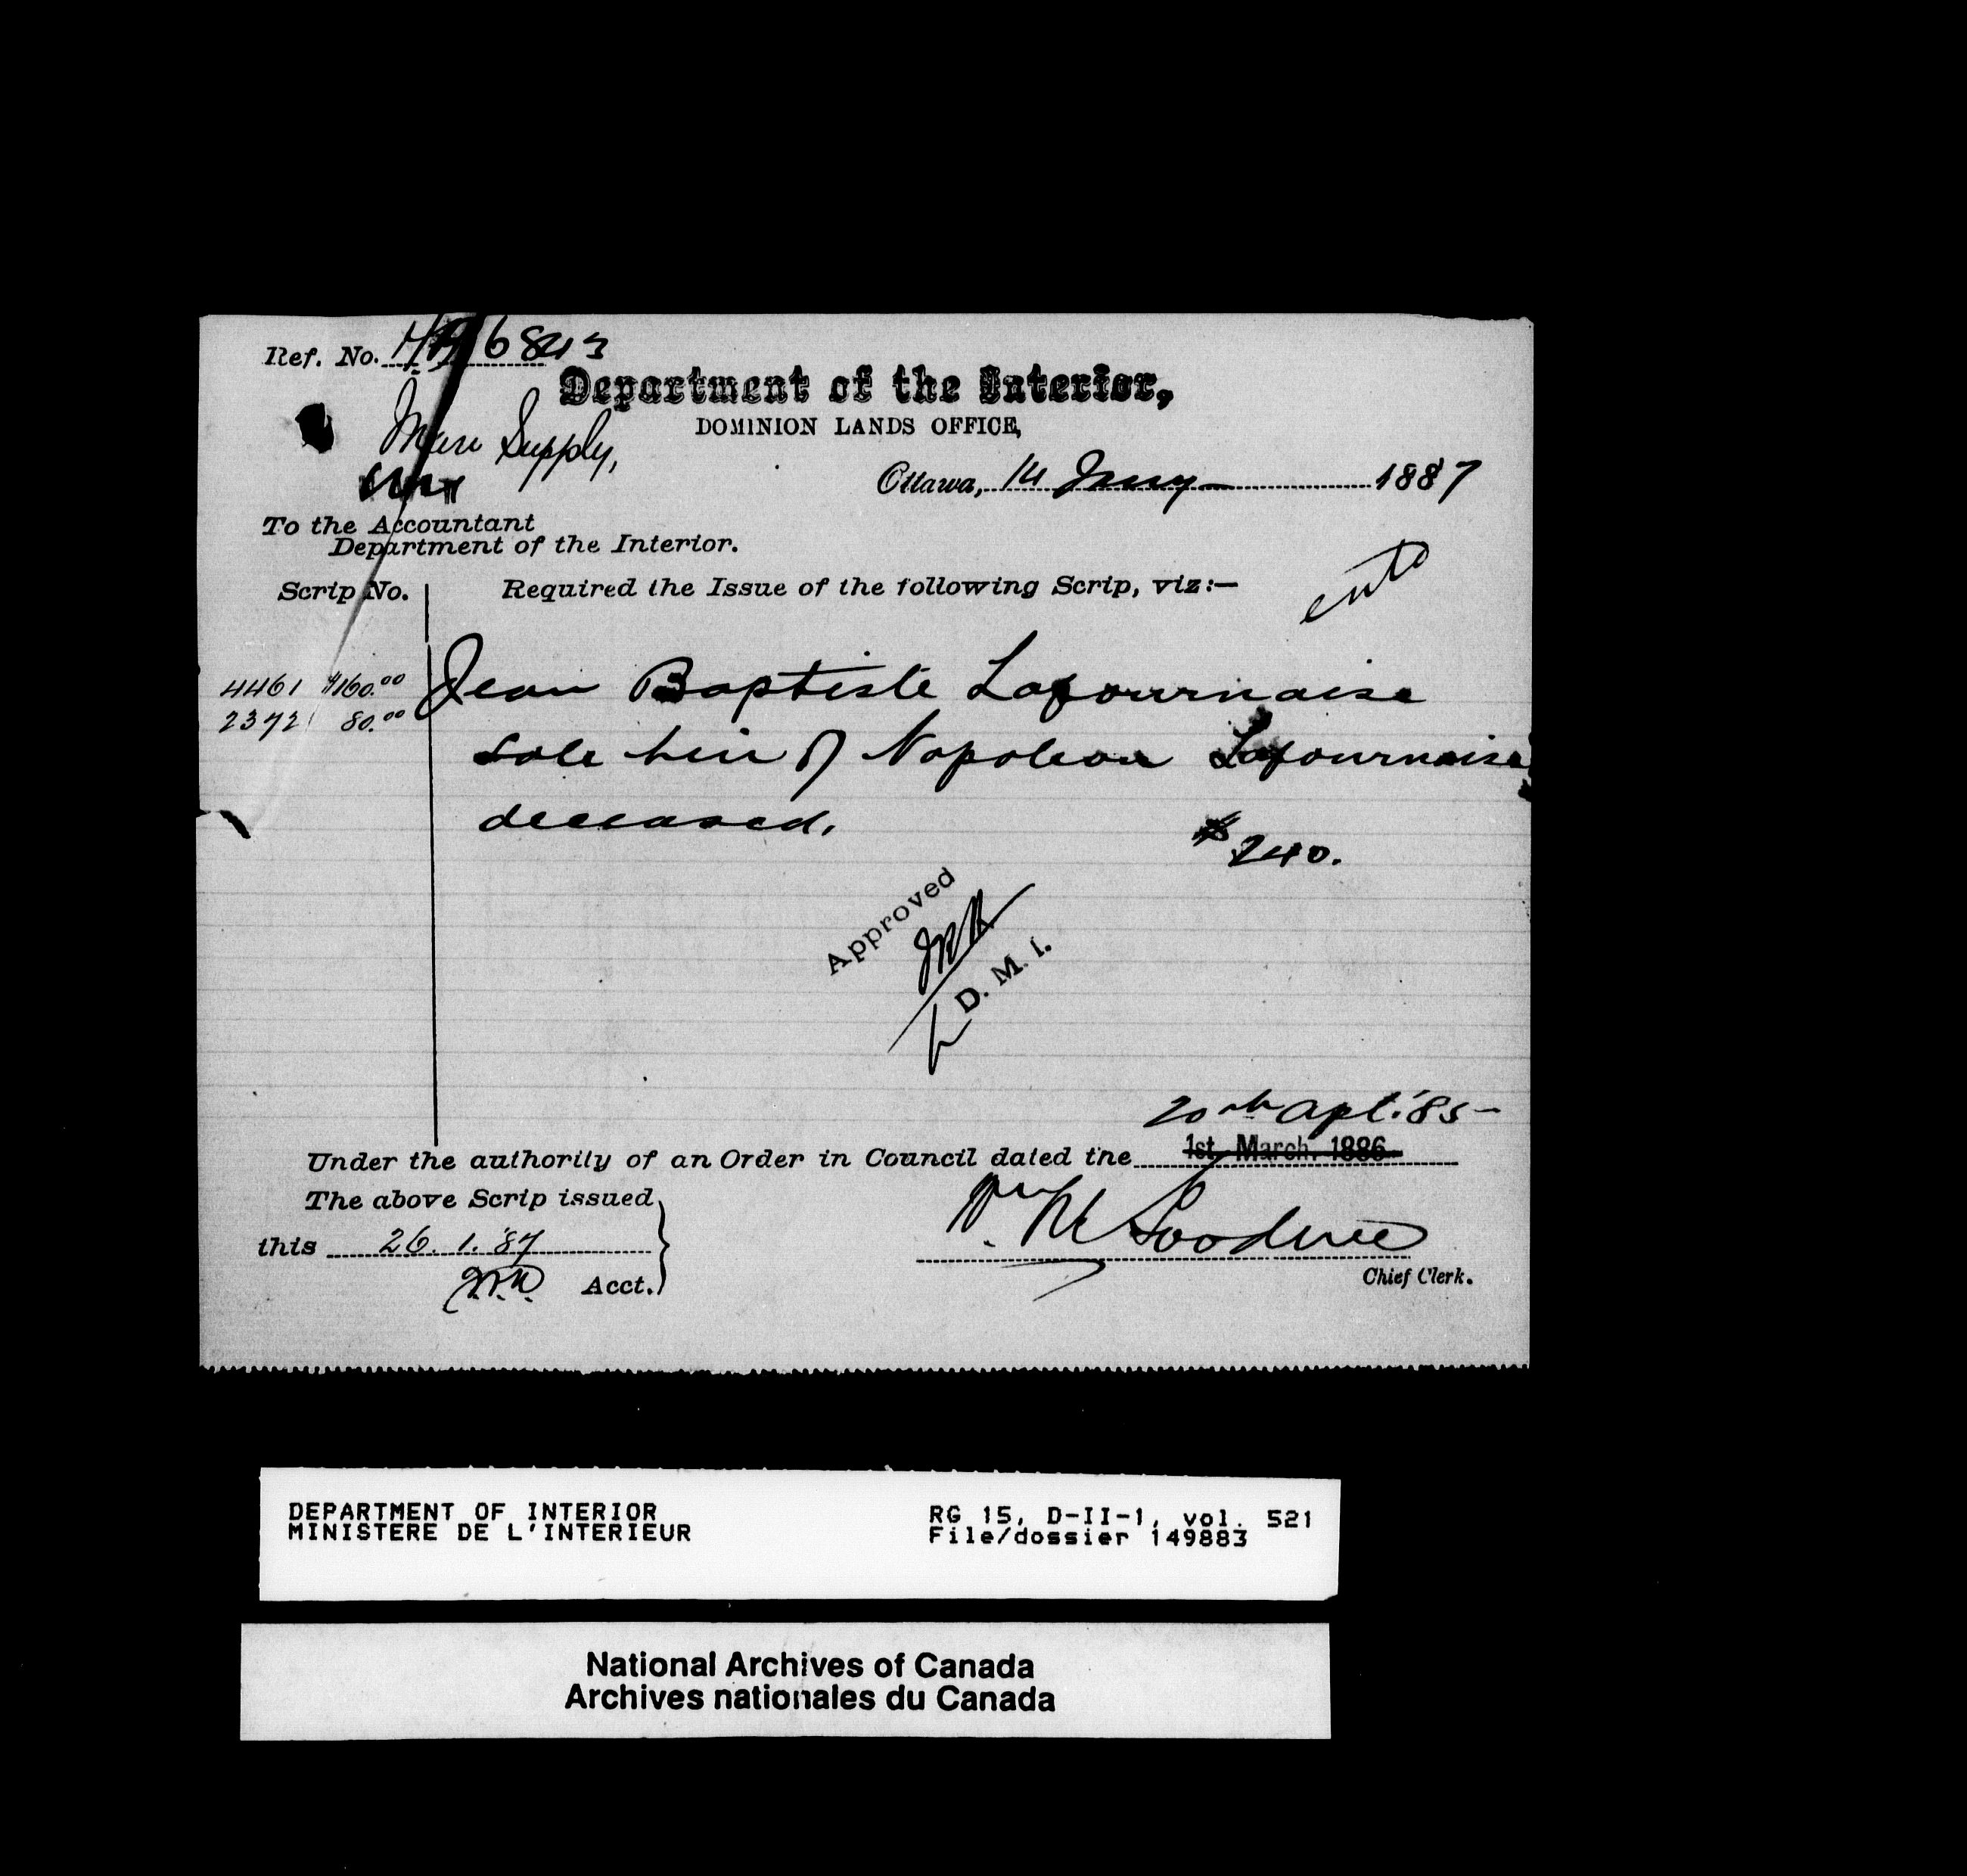 Ref. No. 6843
Department of the Interior,
DOMINION LANDS OFFICE,
Supply,
Ottawa, 14 Jany 1887
To the Accountant
Department of the Interior.
Scrip No. Required the Issue of the following Scrip, viz:—
4461 $160.00 Jean Baptiste Lafournaise
2372 80.00 sole heir of Napoleon Lafournaise
deceased.
$240.
Approved
D. M. I.
20th Apl. '85-
Under the authority of an Order in Council dated the 1st March, 1886
The above Scrip issued
this 26. 1. '87
Acct.
Chief Clerk.
DEPARTMENT OF INTERIOR
MINISTERE DE L'INTERIEUR
RG 15, D-II-1, vol. 521
File/dossier 149883
National Archives of Canada
Archives nationales du Canada